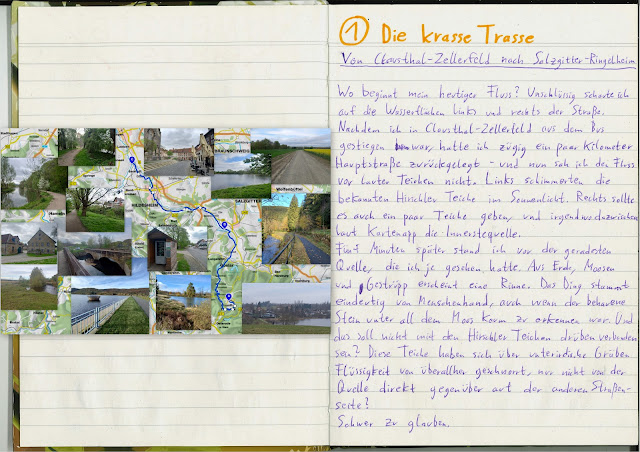 HILDESHEIM
BRAUNSCHWEIG
SALZGITTER
Wolfenbüttel
① Die krasse Trasse
Von Clausthal-Zellerfeld nach Salzgitter-Ringelheim
Wo beginnt mein heutiger Fluss? Unschlüssig schaute ich
auf die Wasserflächen links und rechts der Straße.
Nachdem ich in Clausthal-Zellerfeld aus dem Bus
gestiegen war, hatte ich zügig ein paar Kilometer
Hauptstraße zurückgelegt - und nun sah ich den Fluss
vor lauter Teichen nicht. Links schimmerten die
bekannten Hirschler Teiche im Sonnenlicht. Rechts sollte
es auch ein paar Teiche geben, und irgendwo dazwischen
laut Kartenapp die Innerstequelle.
Fünf Minuten später stand ich vor der geradesten
Quelle, die ich je gesehen hatte. Aus Erde, Moosen
und Gestrüpp erscheint eine Rinne. Das Ding stammt
eindeutig von Menschenhand, auch wenn der behauene
Stein unter all dem Moos kaum zu erkennen war. Und
das soll nicht mit den Hirschler Teichen drüben verbunden
sein? Diese Teiche haben sich über unterirdische Gräben
Flüssigkeit von überallher geschnorrt, nur nicht von der
Quelle direkt gegenüber auf der anderen Straßen-
seite?
Schwer zu glauben.